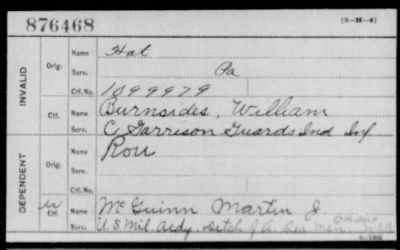 876468
(3-H-4)
INVALID
Orig.
Name Hal
Serv. Pa
Ctf. No. 1099979
Ctf.
Name Burnsides, William
Serv. C Garrison Guards Ind Inf
DEPENDENT
Orig.
Name Rou
Serv.
Ctf.
Name McGuinn Martin J.
Serv. U.S. Mil. Acdy. Detch of A Ser Men